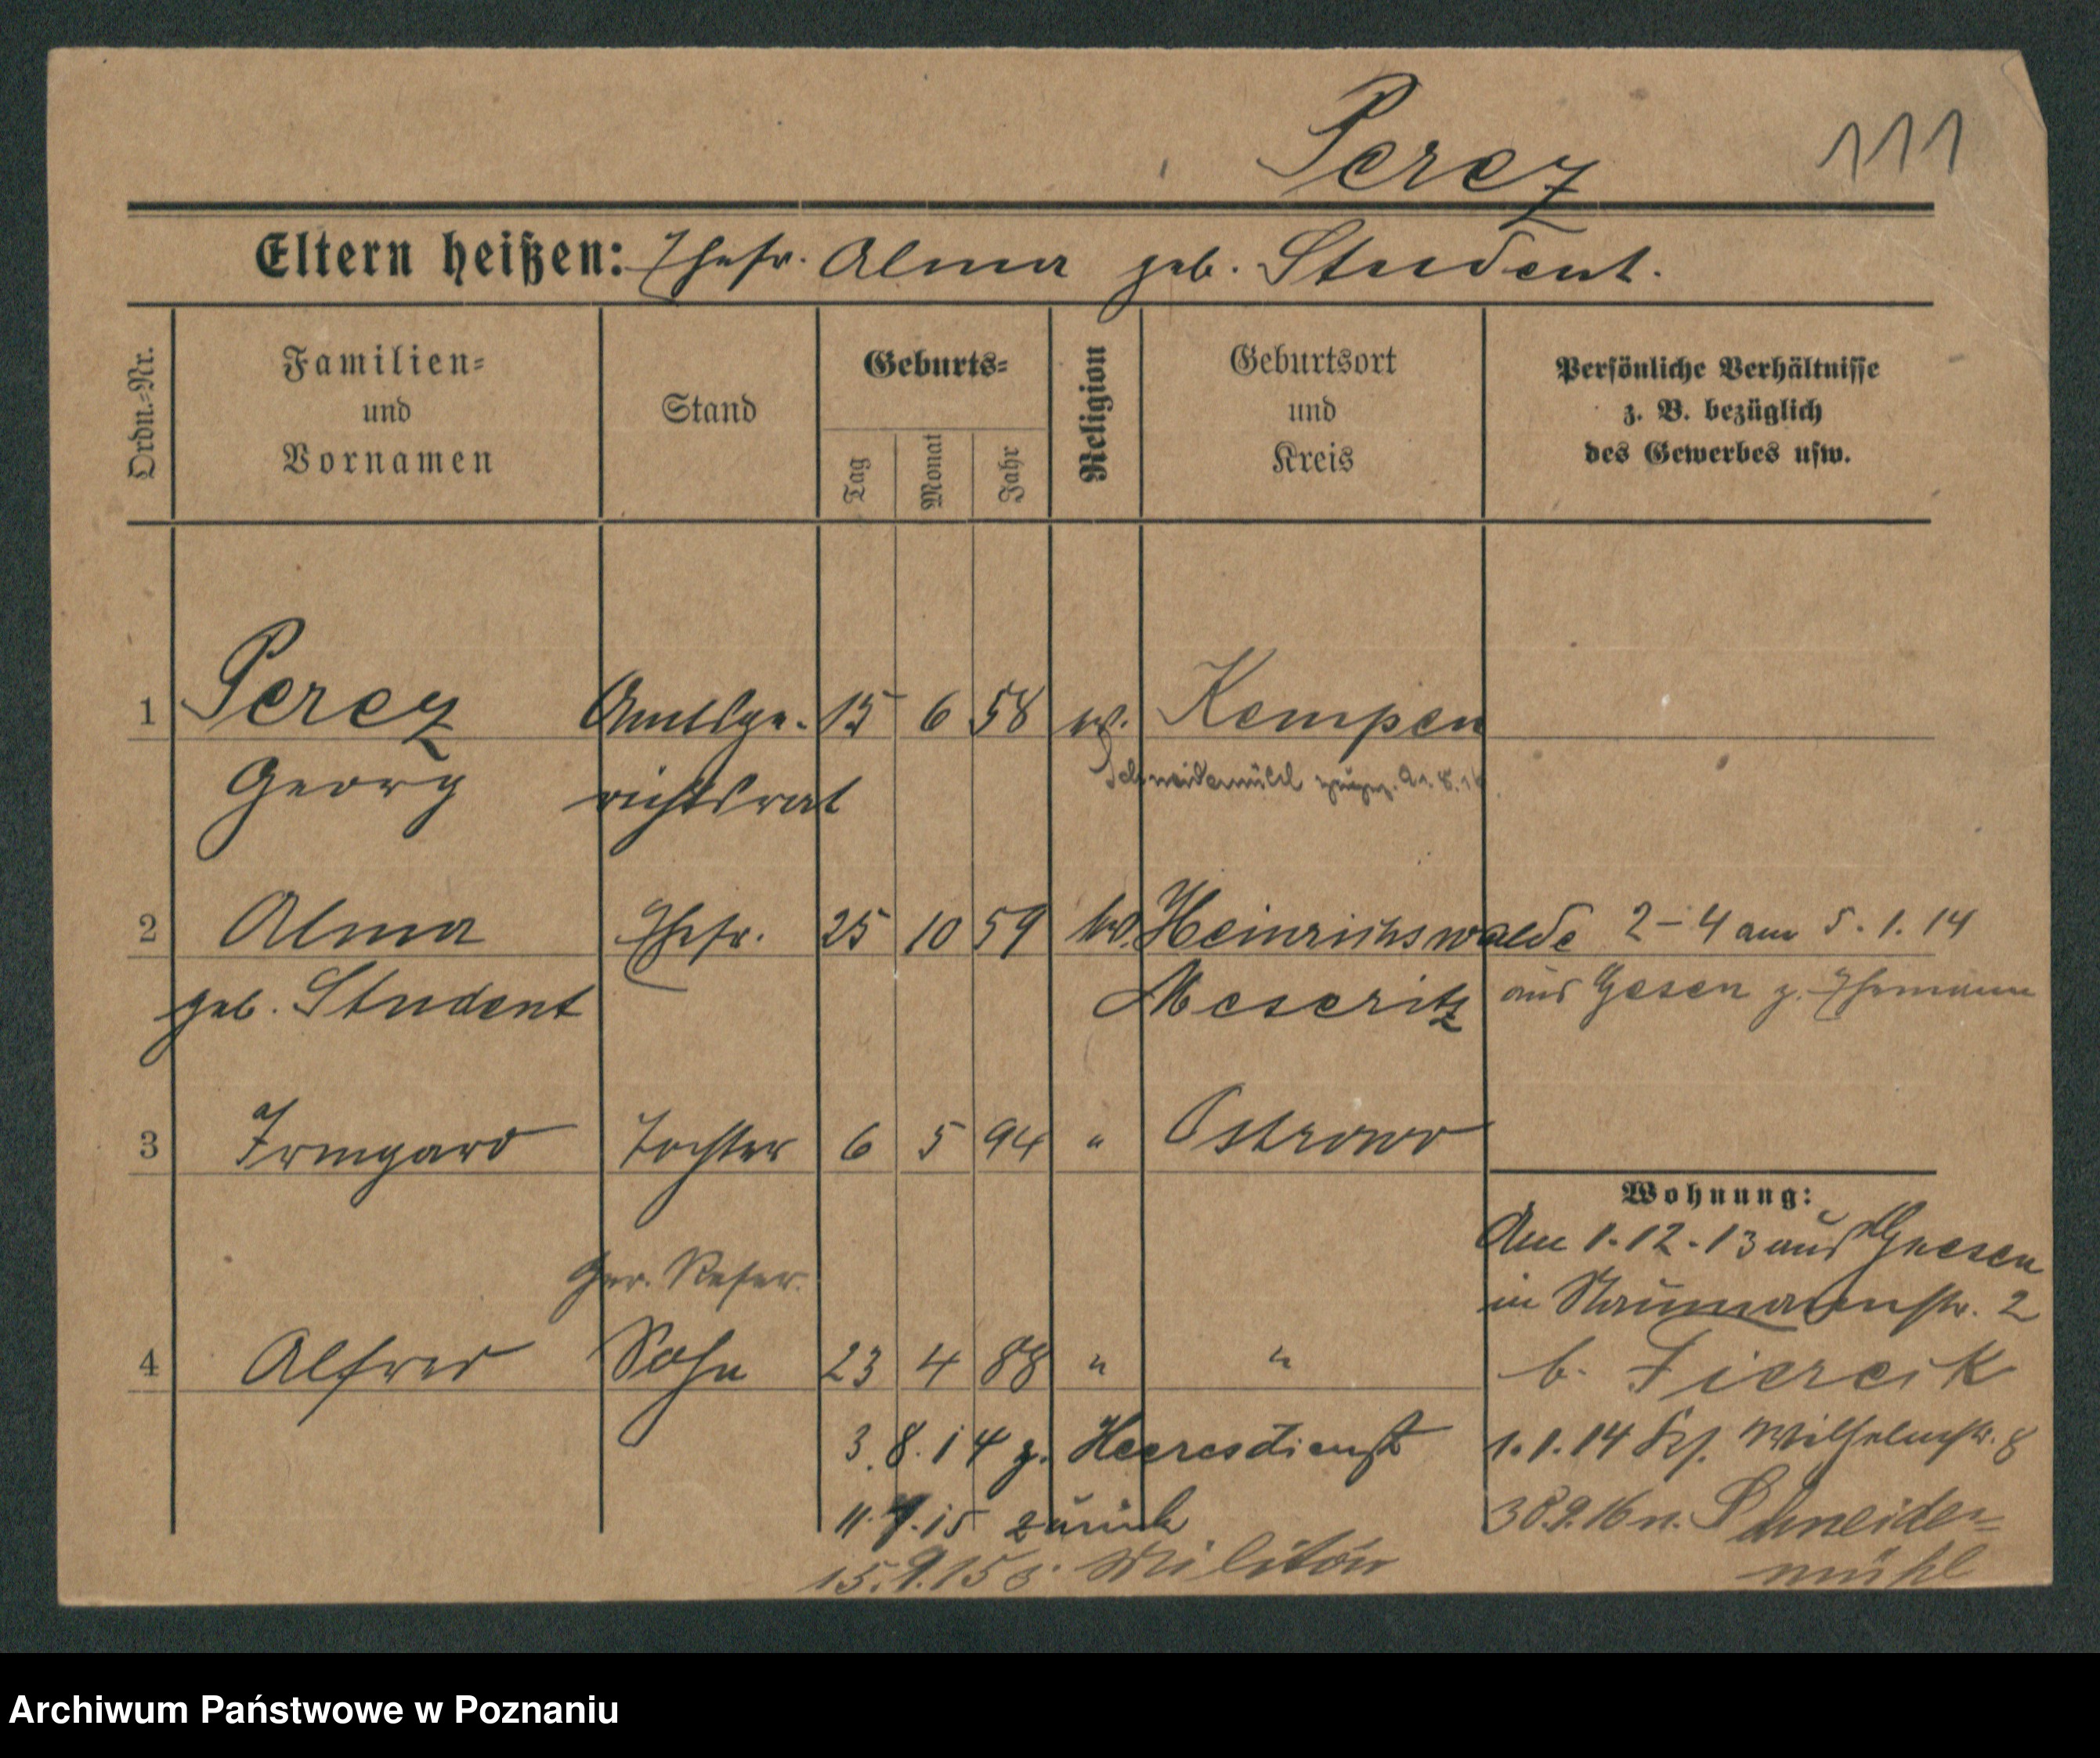 Perez
111
Eltern heißen: Ehefr. Alma geb. Student.
Ordn.-Nr.
Familien-
und
Vornamen
Stand
Geburts-
Tag
Monat
Jahr
Religion
Geburtsort
und
Kreis
Persönliche Verhältnisse
z. B. bezüglich
des Gewerbes usw.
1 Perez Amtsge- 15 6 58 Kempen
Georg richtsrat
Schneidemühl
2 Alma Ehefr. 25 10 59 Heinrichswalde 2-4 am 5. 1. 14
geb. Student Meseritz aus Gesen z. Ehemann
3 Irmgard Tochter 6 5 94 " Ostrowo
Wohnung:
Am 1.12.13 aus Gnesen
in Naumannstr. 2
b. Fiercik
1.1.14 Wilhelmstr. 8
n. Schneide-
mühl
Ger. Refer.
4 Alfred Sohn 23 4 88 " "
3.8.14 z. Heeresdienst
11.7.15 zurück
15.9.15 z. Militär
Archiwum Państwowe w Poznaniu